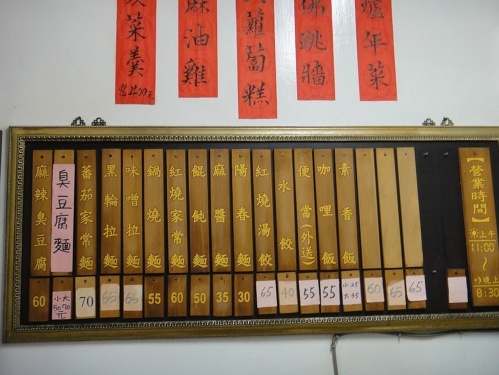 年菜
佛跳牆
蘿蔔糕
麻油雞
菜羹
【營業時間】
上午
11:00
晚上
8:30
65
65
60
素香飯
咖哩飯
55
便當(外送)
55
水餃
40
紅燒湯餃
65
陽春麵
30
麻醬麵
35
餛飩麵
50
紅燒家常麵
60
鍋燒麵
55
味噌拉麵
65
黑輪拉麵
65
番茄家常麵
70
臭豆腐麵
麻辣臭豆腐
60